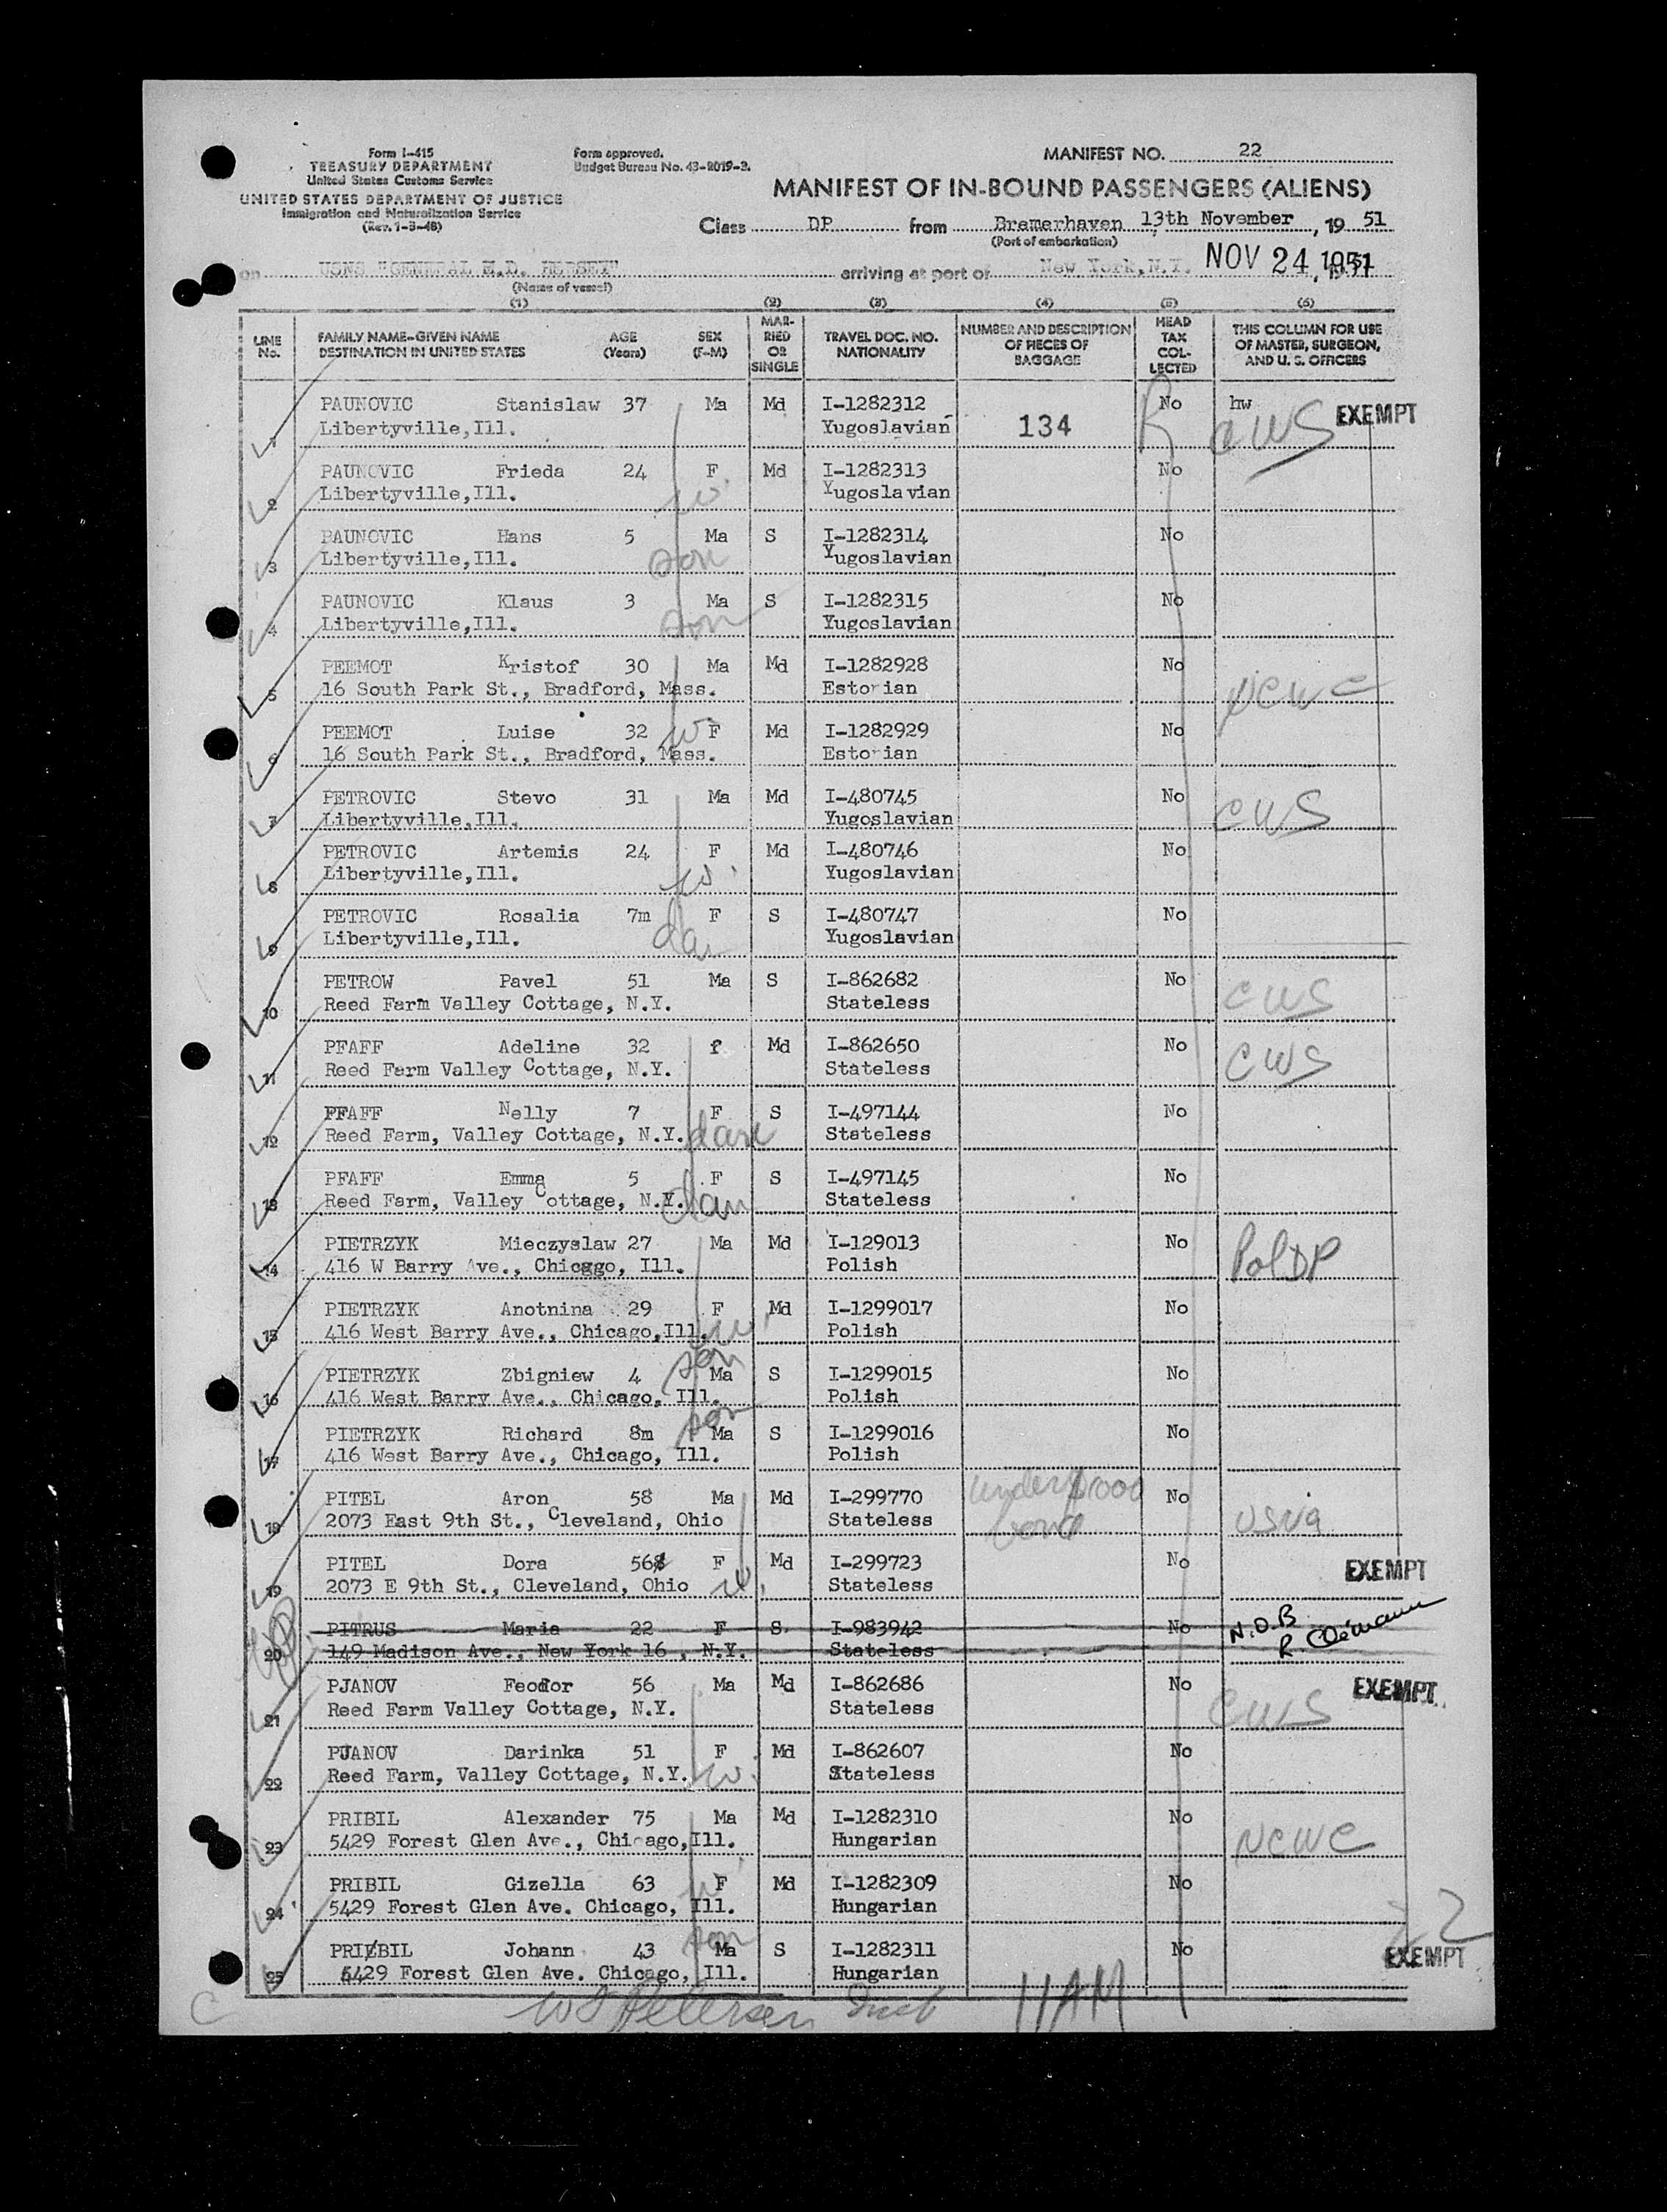 Form I-415
TREASURY DEPARTMENT
United States Customs Service
UNITED STATES DEPARTMENT OF JUSTICE
Immigration and Naturalization Service
(Rev. 1-3-48)
Form approved.
Budget Bureau No. 43-R019-3.
MANIFEST NO. 22
MANIFEST OF IN-BOUND PASSENGERS (ALIENS)
Class DP from Bremerhaven 13th November, 19 51
(Port of embarkation)
on USNS "GENERAL M.D. HERSEY" arriving at port of New York, N.Y. NOV 24 1951
(Name of vessel)
(1) (2) (3) (4) (5) (6)
LINE No. FAMILY NAME-GIVEN NAME DESTINATION IN UNITED STATES AGE (Years) SEX (F-M) MARRIED OR SINGLE TRAVEL DOC. NO. NATIONALITY NUMBER AND DESCRIPTION OF PIECES OF BAGGAGE HEAD TAX COLLECTED THIS COLUMN FOR USE OF MASTER, SURGEON, AND U. S. OFFICERS
PAUNOVIC Stanislaw 37 Ma Md I-1282312 No hw EXEMPT
1 Libertyville,Ill. Yugoslavian 134 CWS
PAUNOVIC Frieda 24 F Md I-1282313 No
2 Libertyville,Ill. w. Yugoslavian
PAUNOVIC Hans 5 Ma S I-1282314 No
3 Libertyville,Ill. son Yugoslavian
PAUNOVIC Klaus 3 Ma S I-1282315 No
4 Libertyville,Ill. son Yugoslavian
PEEMOT Kristof 30 Ma Md I-1282928 No
5 16 South Park St., Bradford, Mass. Estonian NCWC
PEEMOT Luise 32 w F Md I-1282929 No
6 16 South Park St., Bradford, Mass. Estonian
PETROVIC Stevo 31 Ma Md I-480745 No CWS
7 Libertyville,Ill. Yugoslavian
PETROVIC Artemis 24 F Md I-480746 No
8 Libertyville,Ill. w. Yugoslavian
PETROVIC Rosalia 7m F S I-480747 No
9 Libertyville,Ill. dau Yugoslavian
PETROW Pavel 51 Ma S I-862682 No CWS
10 Reed Farm Valley Cottage, N.Y. Stateless
PFAFF Adeline 32 f Md I-862650 No CWS
11 Reed Farm Valley Cottage, N.Y. Stateless
PFAFF Nelly 7 F S I-497144 No
12 Reed Farm, Valley Cottage, N.Y. dau Stateless
PFAFF Emma 5 F S I-497145 No
13 Reed Farm, Valley Cottage, N.Y. dau Stateless
PIETRZYK Mieczyslaw 27 Ma Md I-129013 No PolDP
14 416 W Barry Ave., Chicago, Ill. Polish
PIETRZYK Anotnina 29 F Md I-1299017 No
15 416 West Barry Ave., Chicago,Ill. w. Polish
PIETRZYK Zbigniew 4 son Ma S I-1299015 No
16 416 West Barry Ave., Chicago, Ill. Polish
PIETRZYK Richard 8m son Ma S I-1299016 No
17 416 West Barry Ave., Chicago, Ill. Polish
PITEL Aron 58 Ma Md I-299770 under $1000 No
18 2073 East 9th St., Cleveland, Ohio Stateless bond USNA
PITEL Dora 56 F Md I-299723 No EXEMPT
19 2073 E 9th St., Cleveland, Ohio w. Stateless
PITRUS Maria 22 F S I-983942 No N.O.B
20 149 Madison Ave., New York 16, N.Y. Stateless
PJANOV Feodor 56 Ma Md I-862686 No EXEMPT
21 Reed Farm Valley Cottage, N.Y. Stateless CWS
PJANOV Darinka 51 F Md I-862607 No
22 Reed Farm, Valley Cottage, N.Y. w. Stateless
PRIBIL Alexander 75 Ma Md I-1282310 No
23 5429 Forest Glen Ave., Chicago,Ill. Hungarian NCWC
PRIBIL Gizella 63 w F Md I-1282309 No
24 5429 Forest Glen Ave. Chicago, Ill. Hungarian
22
PRIBIL Johann 43 son Ma S I-1282311 No EXEMPT
25 5429 Forest Glen Ave. Chicago, Ill. Hungarian
C Petersen Insp 11AM